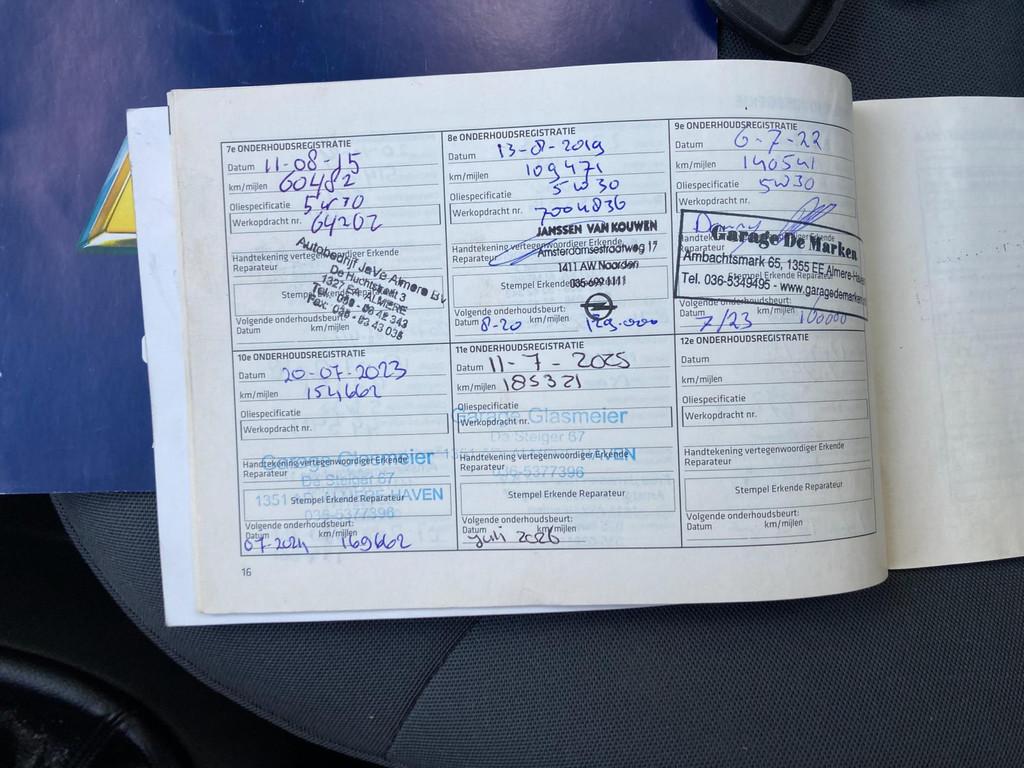 7e ONDERHOUDSREGISTRATIE
Datum 11-08-15
km/mijlen 60482
Oliespecificatie 5w30
Werkopdracht nr. 64202
Handtekening vertegenwoordiger Erkende
Reparateur
Autobedrijf JeVe Almere BV
De Huchtstraat 3
1327 EA ALMERE
Stempel Erkende Reparateur
Volgende onderhoudsbeurt:
Datum km/mijlen
8e ONDERHOUDSREGISTRATIE
Datum 13-8-2019
km/mijlen 109471
Oliespecificatie 5w30
Werkopdracht nr. 7004836
JANSSEN VAN KOUWEN
Handtekening vertegenwoordiger Erkende
Reparateur
Amsterdamsestraatweg 17
1411 AW Naarden
Stempel Erkende Reparateur
035-699 1111
Volgende onderhoudsbeurt:
Datum 8-20 km/mijlen 129.000
9e ONDERHOUDSREGISTRATIE
Datum 6-7-22
km/mijlen 140541
Oliespecificatie 5w30
Werkopdracht nr.
Danny
Handtekening vertegenwoordiger Erkende
Garage De Marken
Ambachtsmark 65, 1355 EE Almere-Haven
Stempel Erkende Reparateur
Tel. 036-5349495 - www.garagedemarken
Volgende onderhoudsbeurt:
Datum 7/23 km/mijlen 160000
10e ONDERHOUDSREGISTRATIE
Datum 20-07-2023
km/mijlen 154662
Oliespecificatie
Werkopdracht nr.
Handtekening vertegenwoordiger Erkende
Reparateur
Garage Glasmeier
De Steiger 67
1351 AD ALMERE HAVEN
Stempel Erkende Reparateur
036-5377396
Volgende onderhoudsbeurt:
Datum km/mijlen
07-2024 169662
11e ONDERHOUDSREGISTRATIE
Datum 11-7-2025
km/mijlen 185321
Oliespecificatie
Garage Glasmeier
Werkopdracht nr.
De Steiger 67
Handtekening vertegenwoordiger Erkende
Reparateur
036-5377396
Stempel Erkende Reparateur
Volgende onderhoudsbeurt:
Datum km/mijlen
juli 2026
12e ONDERHOUDSREGISTRATIE
Datum
km/mijlen
Oliespecificatie
Werkopdracht nr.
Handtekening vertegenwoordiger Erkende
Reparateur
Stempel Erkende Reparateur
Volgende onderhoudsbeurt:
Datum km/mijlen
16